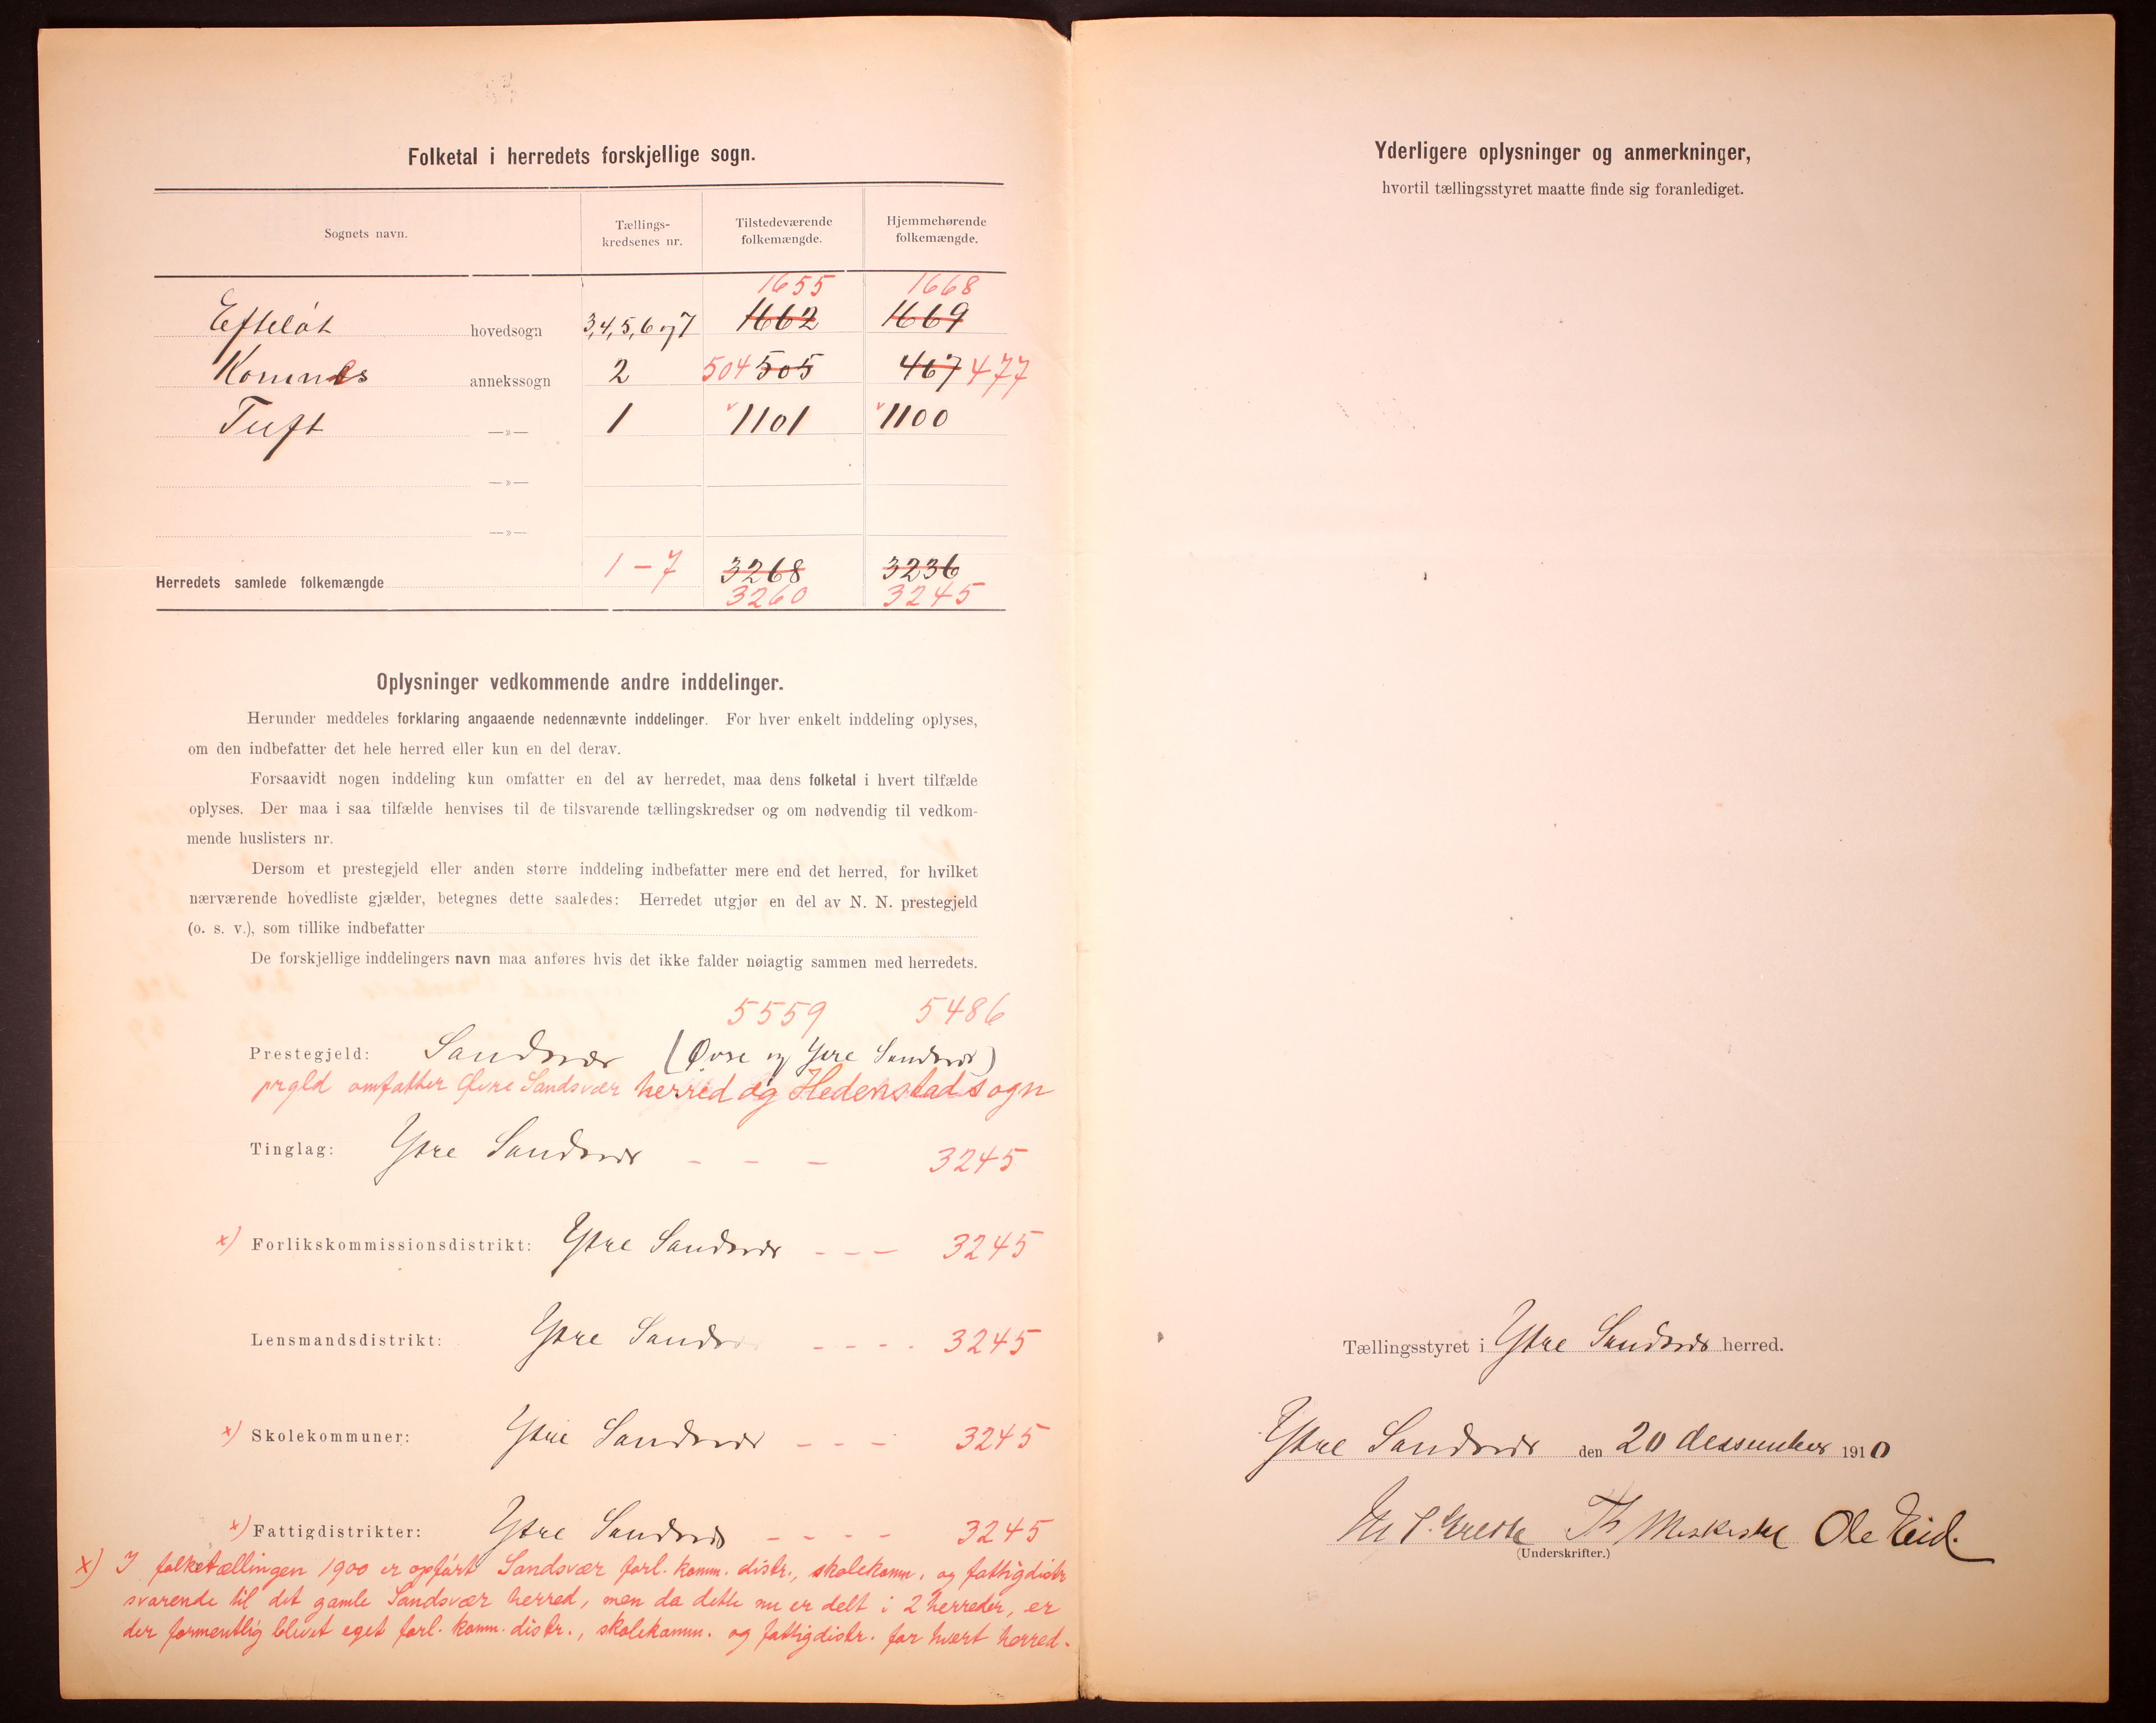 Folketal i herredets forskjellige sogn.
Sognets navn. Tællings-kredsenes nr. Tilstedeværende folkemængde. Hjemmehørende folkemængde.
1655 1668
Efteløt hovedsogn 3,4,5,6 og 7 1662 1669
Komnes annekssogn 2 504 505 467 477
Tuft —»— 1 1101 1100
—»—
—»—
1-7 3268 3236
Herredets samlede folkemængde
3260 3245
Oplysninger vedkommende andre inddelinger.
Herunder meddeles forklaring angaaende nedennævnte inddelinger. For hver enkelt inddeling oplyses,
om den indbefatter det hele herred eller kun en del derav.
Forsaavidt nogen inddeling kun omfatter en del av herredet, maa dens folketal i hvert tilfælde
oplyses. Der maa i saa tilfælde henvises til de tilsvarende tællingskredser og om nødvendig til vedkom-
mende huslisters nr.
Dersom et prestegjeld eller anden større inddeling indbefatter mere end det herred, for hvilket
nærværende hovedliste gjælder, betegnes dette saaledes: Herredet utgjør en del av N. N. prestegjeld
(o. s. v.), som tillike indbefatter
De forskjellige inddelingers navn maa anføres hvis det ikke falder nøiagtig sammen med herredets.
5559 5486
Prestegjeld: Sandsvær (Øvre og Ytre Sandsvær)
prgld omfatter Øvre Sandsvær herred og Hedenstad sogn
Tinglag: Ytre Sandsvær - - - 3245
x) Forlikskommissionsdistrikt: Ytre Sandsvær - - - 3245
Lensmandsdistrikt: Ytre Sandsvær - - - - 3245
x) Skolekommuner: Ytre Sandsvær - - - 3245
x) Fattigdistrikter: Ytre Sandsvær - - - - 3245
x) I folketællingen 1900 er opført Sandsvær forl. komm. distr., skolekomm. og fattigdistr
svarende til det gamle Sandsvær herred, men da dette nu er delt i 2 herreder, er
der formentlig blevet eget forl. komm. distr., skolekomm. og fattigdistr. for hvert herred.
Yderligere oplysninger og anmerkninger,
hvortil tællingsstyret maatte finde sig foranlediget.
Tællingsstyret i Ytre Sandsvær herred.
Ytre Sandsvær den 20 dessember 1910
Th Ole Eid.
(Underskrifter.)